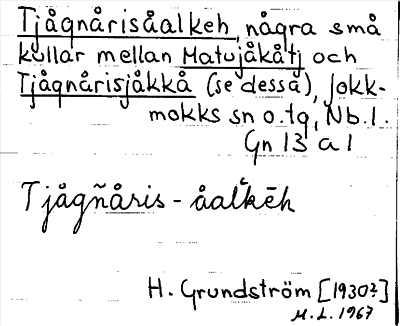 Tjågnårisåalkeh, några små
kullar mellan Matujåkåtj och
Tjågnårisjåkkå (se dessa), Jokk-
mokks sn o. tg, Nb. l.
Gn 13 a 1
Tjågñåris - åalˈkēh
H. Grundström [1930?]
M. L. 1967